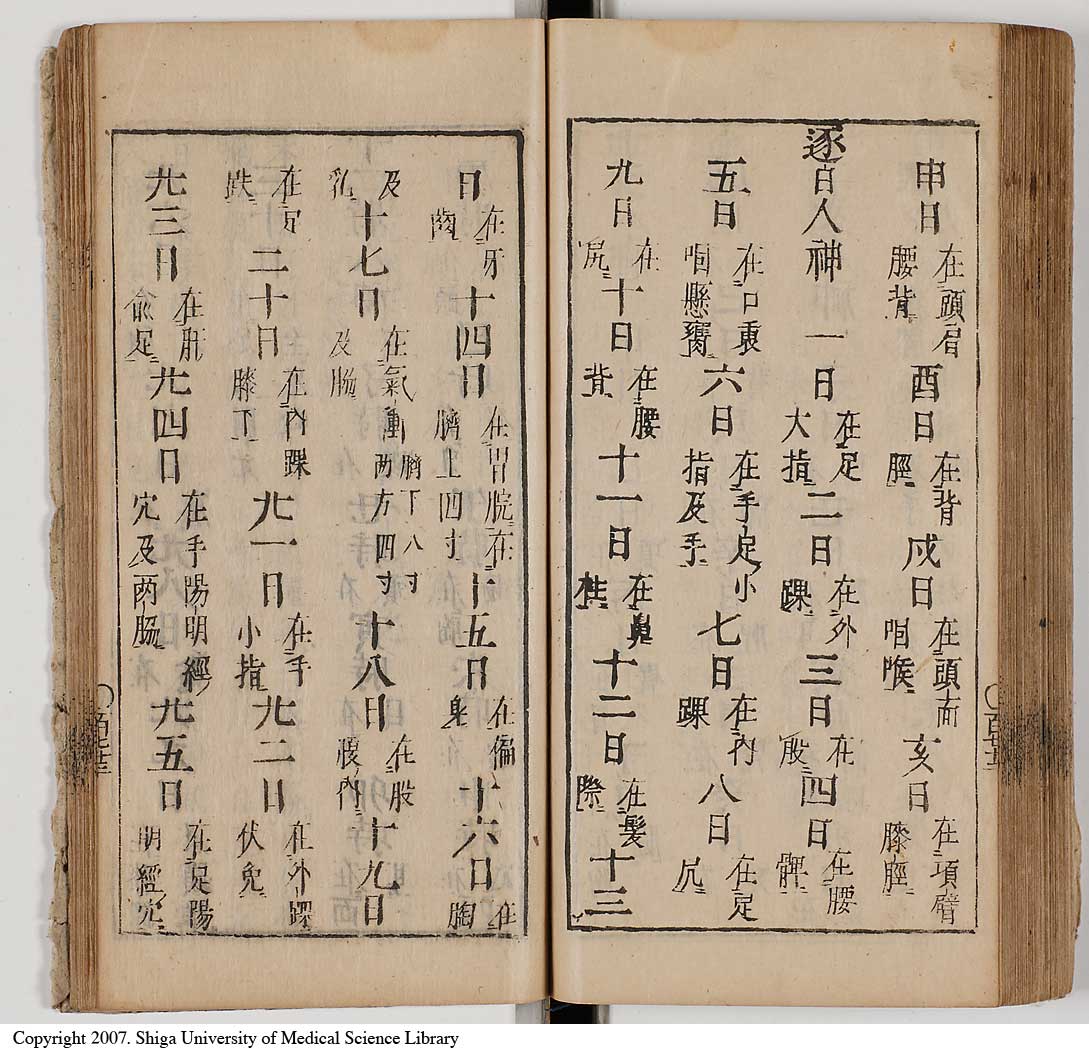 申日在頭眉腰背酉日在背脛戌日在頭面咽喉亥日在項臂膝脛
逐日人神一日在足大指二日在外踝三日在股四日在腰髀
五日在口裏咽懸癰六日在手足小指及手七日在內踝八日在足尻
九日在尻十日在腰背十一日在鼻柱十二日在髮際十三
日在牙齒十四日在胃脘在臍上四寸十五日在偏身十六日在胸
及乳十七日在氣衝臍下八寸两方四寸及腸十八日在股腹內十九日
在足趺二十日在內踝膝下廿一日在手小指廿二日在外踝伏兔
廿三日在肝俞足廿四日在手陽明經穴及两腸廿五日在足陽明經穴
Copyright 2007. Shiga University of Medical Science Library